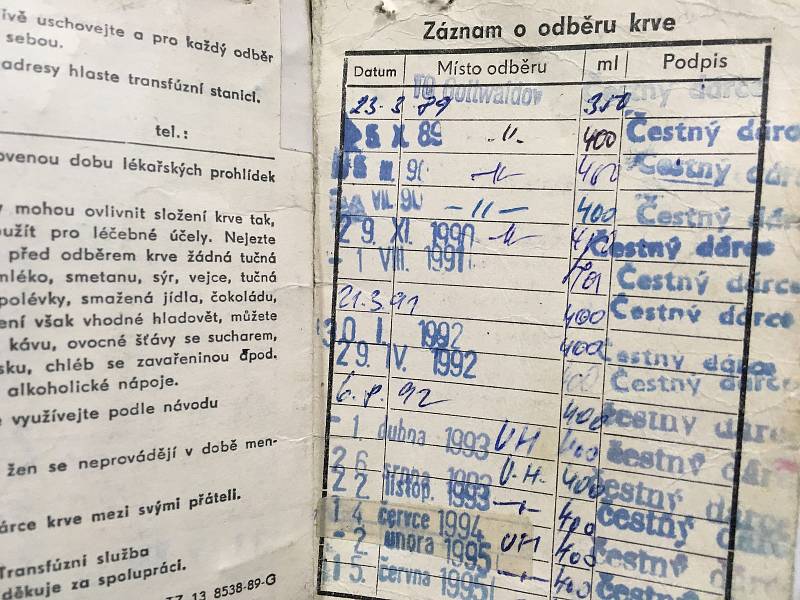 ivě uschovejte a pro každý odběr
sebou.
adresy hlaste transfúzní stanici.
tel.:
ovenou dobu lékařských prohlídek
mohou ovlivnit složení krve tak,
oužít pro léčebné účely. Nejezte
před odběrem krve žádná tučná
mléko, smetanu, sýr, vejce, tučná
polévky, smažená jídla, čokoládu,
ení však vhodné hladovět, můžete
kávu, ovocné šťávy se sucharem,
sku, chléb se zavařeninou apod.
alkoholické nápoje.
využívejte podle návodu
žen se neprovádějí v době men-
árce krve mezi svými přáteli.
Transfúzní služba
děkuje za spolupráci.
13 8538-89-G
Záznam o odběru krve
Datum Místo odběru ml Podpis
23. 3 89 TO Gottwaldov 350 Čestný dárce
5 X 89 -"- 400 Čestný dárce
90 -"- 400 Čestný dárce
VII. 90 -"- 400 Čestný
29. XI. 1990 -"- 400 Čestný dárce
- 1 VIII. 1991 Čestný dárce
21.3.91 400 Čestný dárce
30 I. 1992 400 Čestný dárce
29 IV. 1992 400 Čestný dárce
6. 8. 92 400 Čestný dárce
- 1. dubna 1993 UH 400 Čestný dárce
26. srpna 1993 U.H. 400 Čestný
22. listop. 1993 -"- 400 Čestný
14. červce 1994 400 Čestný
- 2. února 1995 UH 400 Čestný
15. června 1995 -"- 400 Čestný